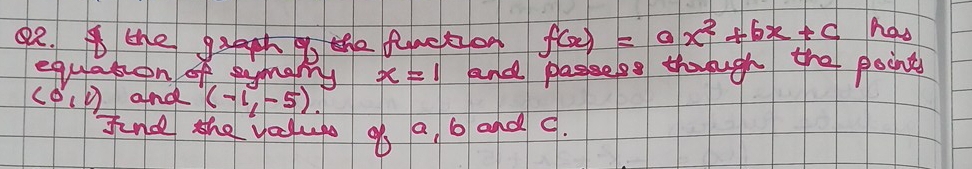 Q2. If the graph of the function f(x) = ax² + bx + c has
equation of symetry x = 1 and passess through the points
(0,1) and (-1,-5).
Find the values of a, b and c.